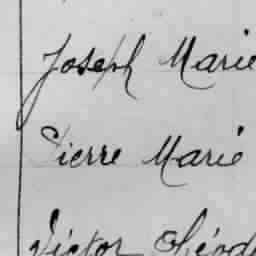 Joseph Marie
Pierre Marie
Victor